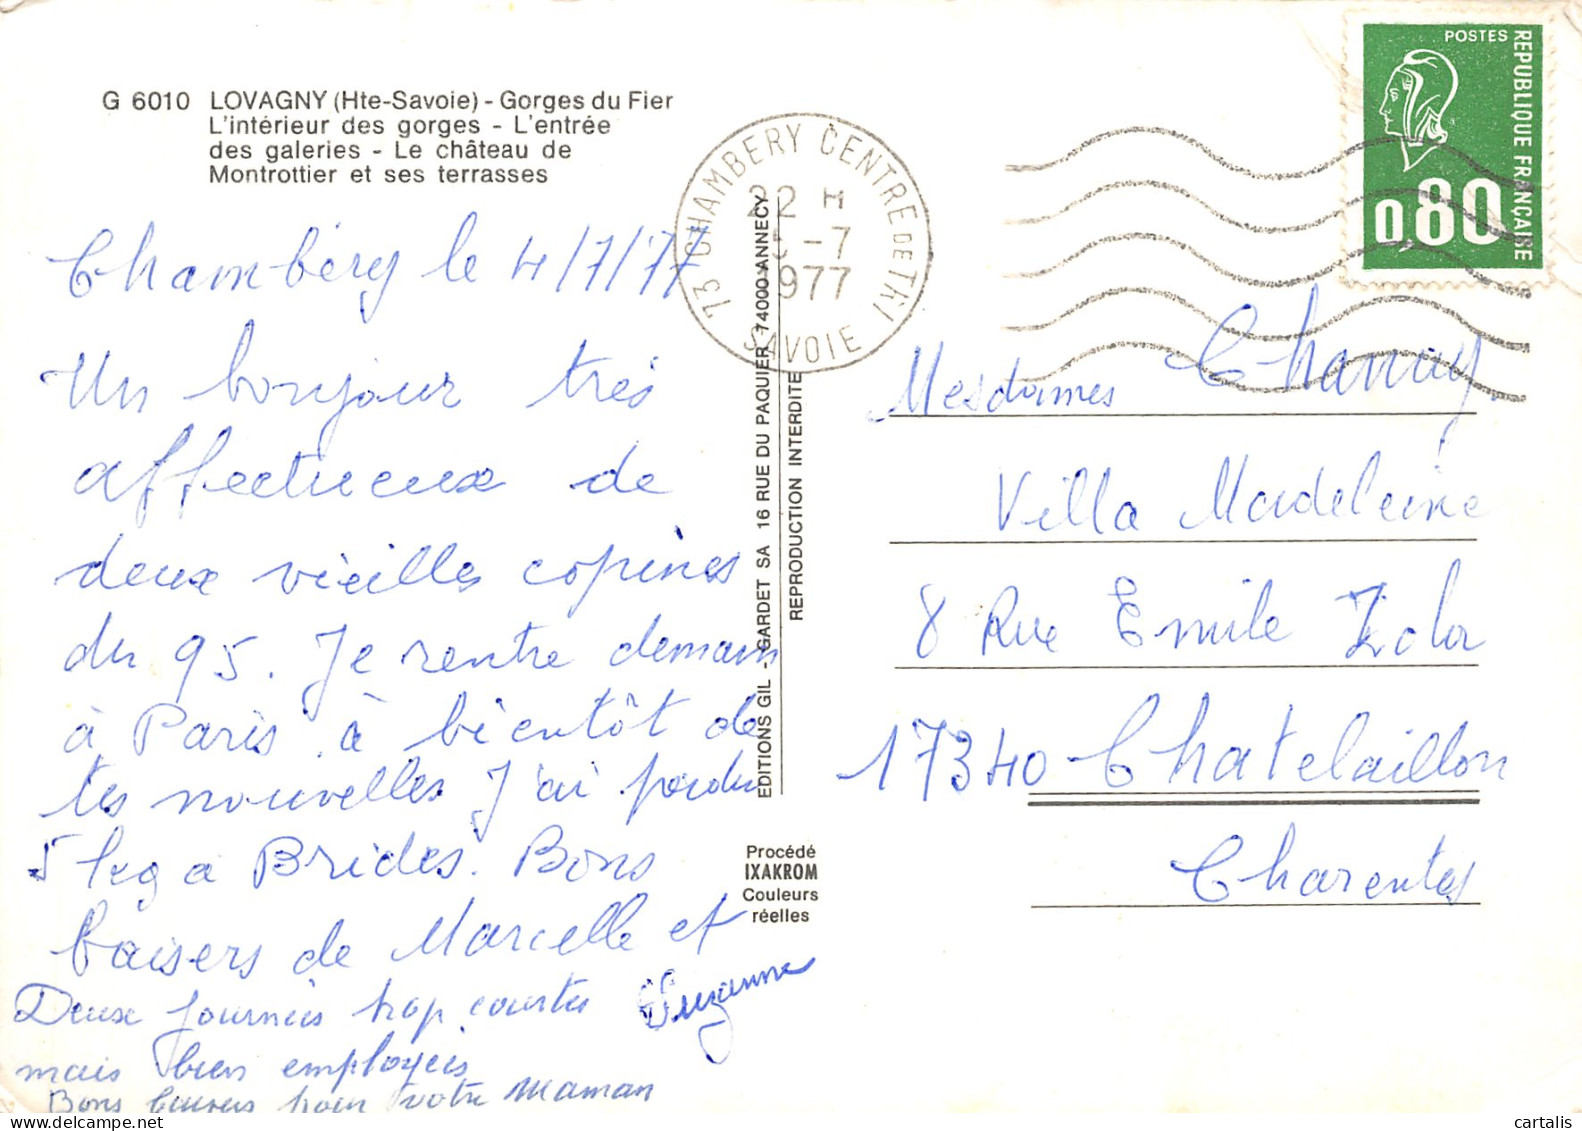 G 6010 LOVAGNY (Hte-Savoie) - Gorges du Fier
L'intérieur des gorges - L'entrée
des galeries - Le château de
Montrottier et ses terrasses
Chambéry le 4/7/77
Un bonjour très
affectueux de
deux vieilles copines
du 95. Je rentre demain
à Paris à bientôt de
tes nouvelles J'ai perdu
5 kg a Brides. Bons
baisers de Marcelle et
Suzanne
Deux journées trop courtes
mais bien employées
Bons baisers pour votre Maman
73 CHAMBERY CENTRE DE TRI
22 H
5 -7
1977
SAVOIE
EDITIONS GIL - GARDET SA 16 RUE DU PAQUIER 74000 ANNECY
REPRODUCTION INTERDITE
Procédé
IXAKROM
Couleurs
réelles
POSTES
REPUBLIQUE FRANÇAISE
0,80
Mesdames
Villa Madeleine
8 Rue Emile Zola
17340 Chatelaillon
Charentes
cartalis